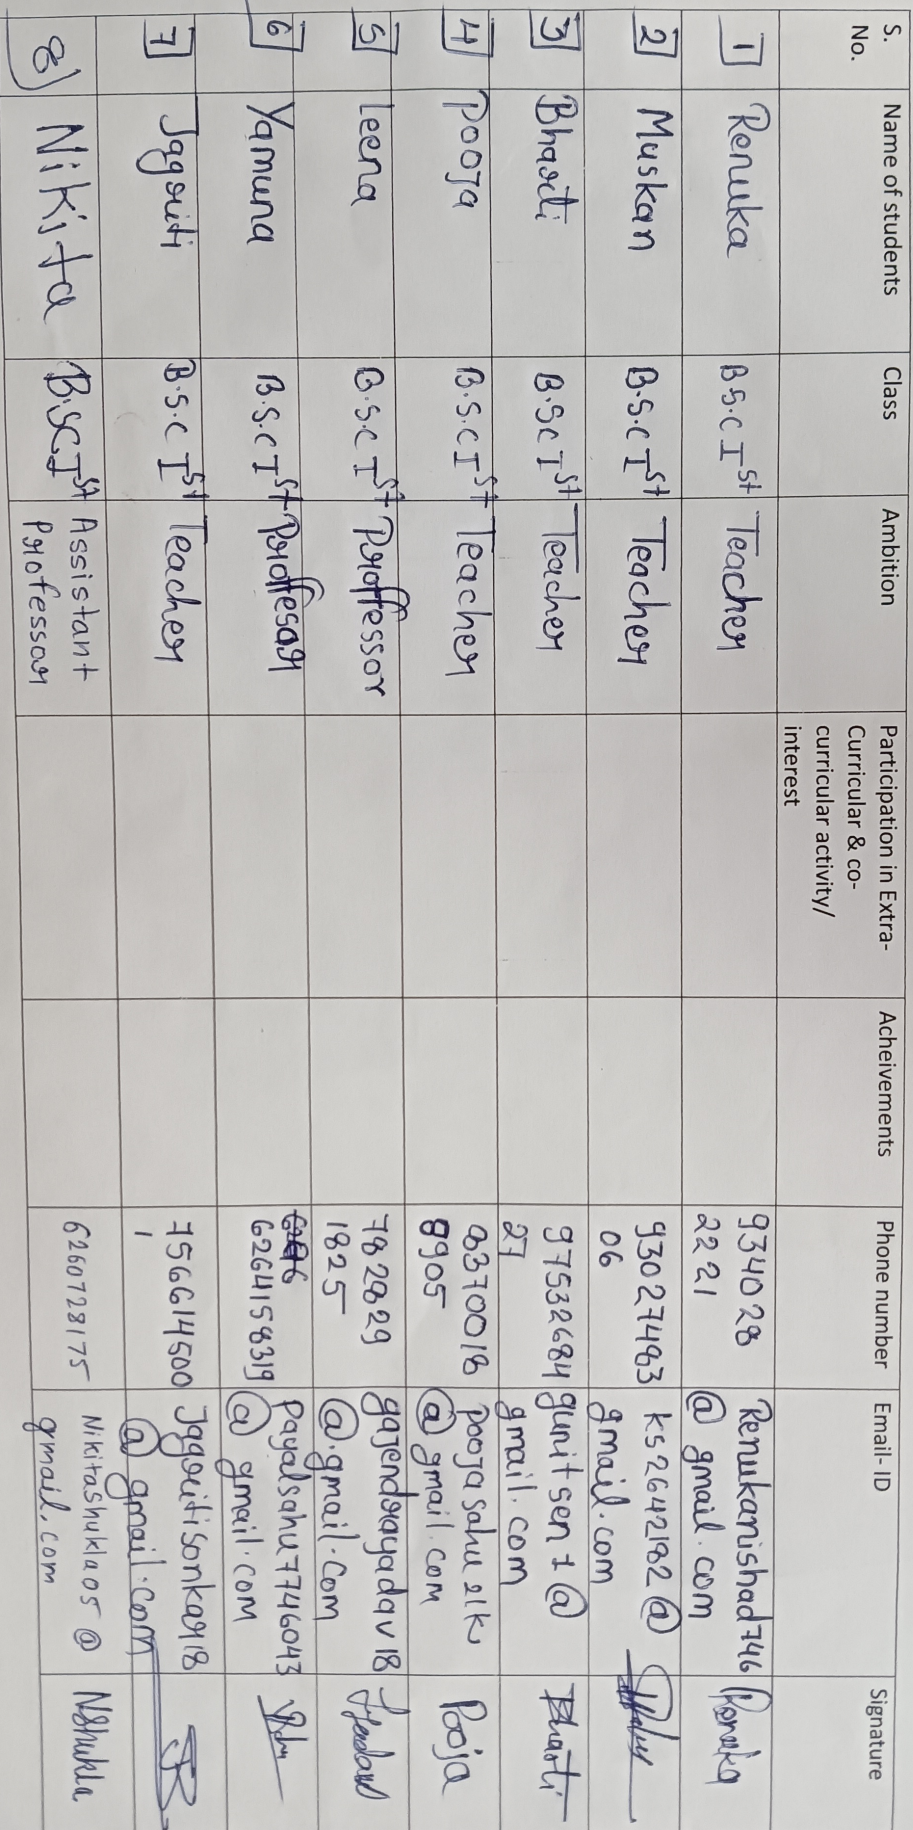 S. No. Name of students Class Ambition Participation in Extra-Curricular & co-curricular activity/ interest Acheivements Phone number Email-ID Signature
1 Renuka B.S.C Ist Teacher 934028 2221 Renukanishad746 @ gmail.com Renuka
2 Muskan B.S.C Ist Teacher 93027483 06 ks2642182@ gmail.com
3 Bharti B.Sc Ist Teacher 97532684 27 gunitsen7@ gmail.com Bharti
4 Pooja B.S.C Ist Teacher 8370018 8905 poojasahu21k @ gmail.com Pooja
5 leena B.S.C Ist Proffessor 782829 1825 gajendrayadav18 @.gmail.com
6 Yamuna B.S.C Ist Proffesar 6264158319 payalsahu7746043 @ gmail.com
7 Jagriti B.S.C Ist Teacher 756614500 1 Jagritisonkar18 @ gmail.com
8) Nikita B.SC Ist Assistant Professar 6260728175 Nikitashukla05@ gmail.com NShukla